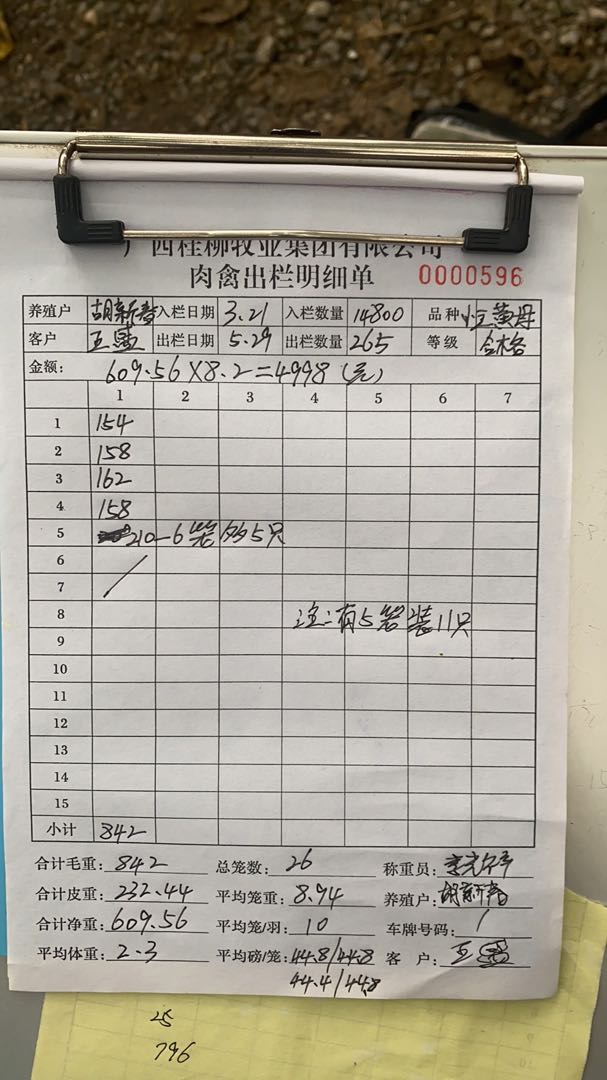 广西桂柳牧业集团有限公司
肉禽出栏明细单 0000596
养殖户 胡新春 入栏日期 3.21 入栏数量 14800 品种 黄母
客户 王 出栏日期 5.29 出栏数量 265 等级 合格
金额: 609.56×8.2=4998(元)
1 2 3 4 5 6 7
1 154
2 158
3 162
4 158
5 210-6笼多5只
6
7
8 注:有5笼装11只
9
10
11
12
13
14
15
小计 842
合计毛重: 842 总笼数: 26 称重员:
合计皮重: 232.44 平均笼重: 8.94 养殖户: 胡新春
合计净重: 609.56 平均笼/羽: 10 车牌号码: /
平均体重: 2.3 平均磅/笼: 44.8/44.8 客户: 王
44.4/44.8
25
796